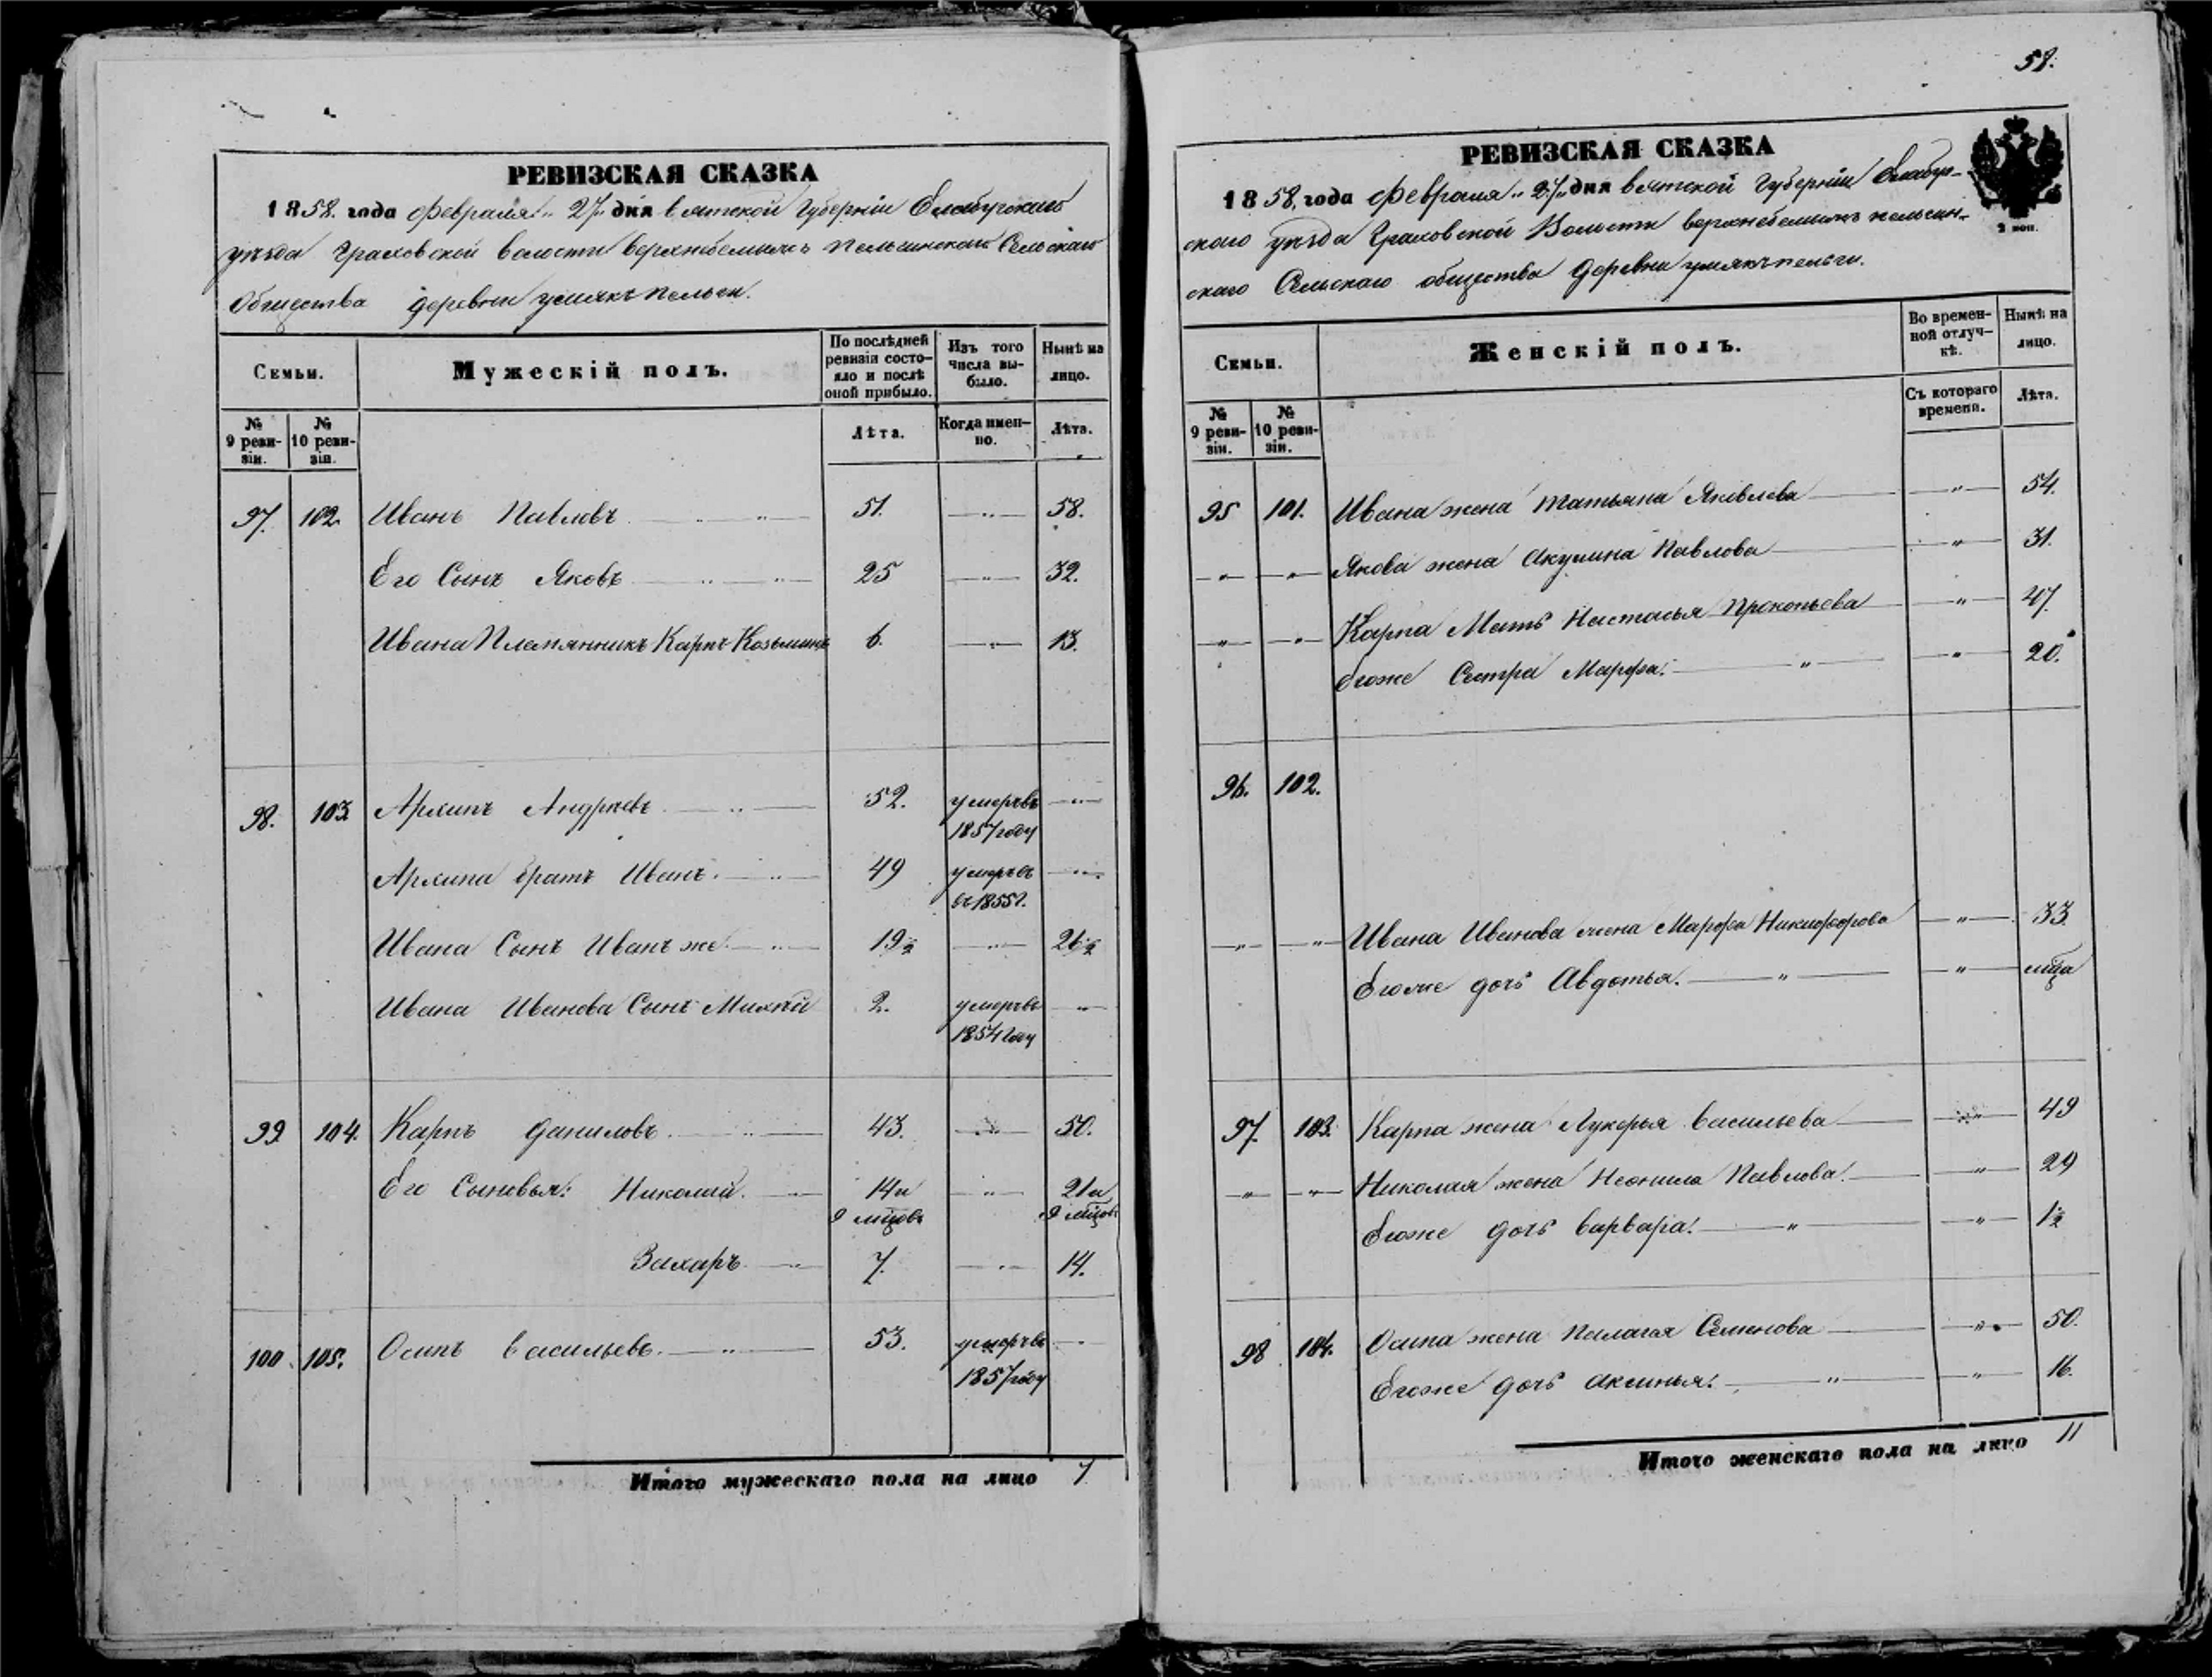 58.
РЕВИЗСКАЯ СКАЗКА
1858. года Февраля „27„ дня Вятской Губернiи Елабугскаго
уѣзда Граховской волости Верхнебемижъ Пельгинскаго Сельскаго
Общества деревни
Семьи.
Мужескiй полъ.
По послѣдней ревизiи состо-
яло и послѣ
оной прибыло.
Изъ того
числа вы-
было.
Нынѣ на
лицо.
№
9 реви-
зiи.
№
10 реви-
зiи.
Лѣта.
Когда имен-
но.
Лѣта.
97. 102. Иванъ Павловъ 51. — „ — 58.
Его Сынъ Яковъ 25 — „ — 32.
Ивана Племянникъ Карпъ Козьминъ 6. — „ — 13.
98. 103. Архипъ Андреевъ 52. умеръ въ — „ —
1857 году
Архипа братъ Иванъ. 49 умеръ въ — „ —
въ 1855 г.
Ивана Сынъ Иванъ же 19½ — „ — 26½
Ивана Иванова Сынъ Михѣй 2. умеръ въ — „ —
1854 году
99 104. Карпъ Даниловъ 43. — „ — 50.
Его Сыновья: Николай. 14 и — „ — 21 и
9 мѣсцовъ 9 мѣсцовъ
Захаръ 7. — „ — 14.
100. 105. Осипъ Васильевъ. 53. умеръ въ — „ —
1857 году
Итого мужескаго пола на лицо 7
РЕВИЗСКАЯ СКАЗКА
1858, года Февраля „27„ дня Вятской Губернiи Елабуг-
скаго уѣзда Граховской Волости Верхнебемижъ Пельгин-
скаго Сельскаго общества Деревни
2 коп.
Семьи.
Женскiй полъ.
Во времен-
ной отлуч-
кѣ.
Нынѣ на
лицо.
№
9 реви-
зiи.
№
10 реви-
зiи.
Съ котораго
времени.
Лѣта.
95 101. Ивана жена Татьяна Яковлева — „ — 54.
— „ — — „ — Якова жена Акулина Павлова — „ — 31.
— „ — — „ — Карпа Мать Настасья Прокопьева — „ — 47.
Егоже Сестра Марфа. — „ — — „ — 20.
96. 102.
— „ — — „ — Ивана Иванова жена Марфа Никифорова — „ — 33.
Егоже дочь Авдотья. — „ — — „ —
97. 103. Карпа жена Лукерья Васильева — „ — 49
— „ — — „ — Николая жена Неонила Павлова. — „ — 29
Егоже дочь Варвара. — „ — — „ — 1½
98 104. Осипа жена Палагея Семенова — „ — 50.
Егоже дочь Аксинья. — „ — — „ — 16.
Итого женскаго пола на лицо 11